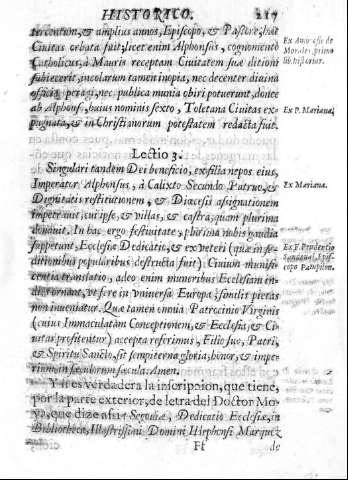 HISTORICO. 217
tercentum, & amplius annos, Episcopo, & Pastore, hæc
Civitas orbata fuit; licet enim Alphonsus, cognomento
Catholicus, à Mauris receptam Civitatem suæ ditioni
subiecerit, incolarum tamen inopia, nec decenter divina
officia peragi, nec publica munia obiri potuerunt, donec
ab Alphonso, huius nominis sexto, Toletana Civitas ex-
pugnata, & in Christianorum potestatem redacta fuit.
Ex Ambrosio de
Morales, primo
lib. histor.
Ex P. Mariana,
Lectio 3.
Singulari tandem Dei beneficio, ex filia nepos eius,
Imperator Alphonsus, à Calixto Secundo Patruo, &
Dignitatis restitutionem, & Diœcesis assignationem
impetravit, cui ipse, & villas, & castra, quam plurima
donavit. In hac ergo festivitate, plurima nobis gaudia
suppetunt, Ecclesiæ Dedicatio, & ex veteri (quæ in se-
ditionibus popularibus destructa fuit) Civium munifi-
centia translatio, adeo enim muneribus Ecclesiam in-
dies ornant, ut fere in vniversa Europa similis pietas
non inveniatur. Quæ tamen omnia Patrocinio Virginis
(cuius Immaculatam Conceptionem, & Ecclesia, & Ci-
vitas profitentur) accepta referimus, Filio suo, Patri,
& Spiritu Sancto, sit sempiterna gloria, honor, & impe-
rium in sæculorum sæcula. Amen.
Ex Mariana.
Ex F. Prudentio
Sandoval, Epis-
copo Pampilon.
Y si es verdadera la inscripcion, que tiene,
por la parte exterior, de letra del Doctor Mo-
ya, que dize assi: Segoviæ, Dedicatio Ecclesiæ, in
Bibliotheca, Illustrissimi Domini Illiphonsi Marquez
Ff de